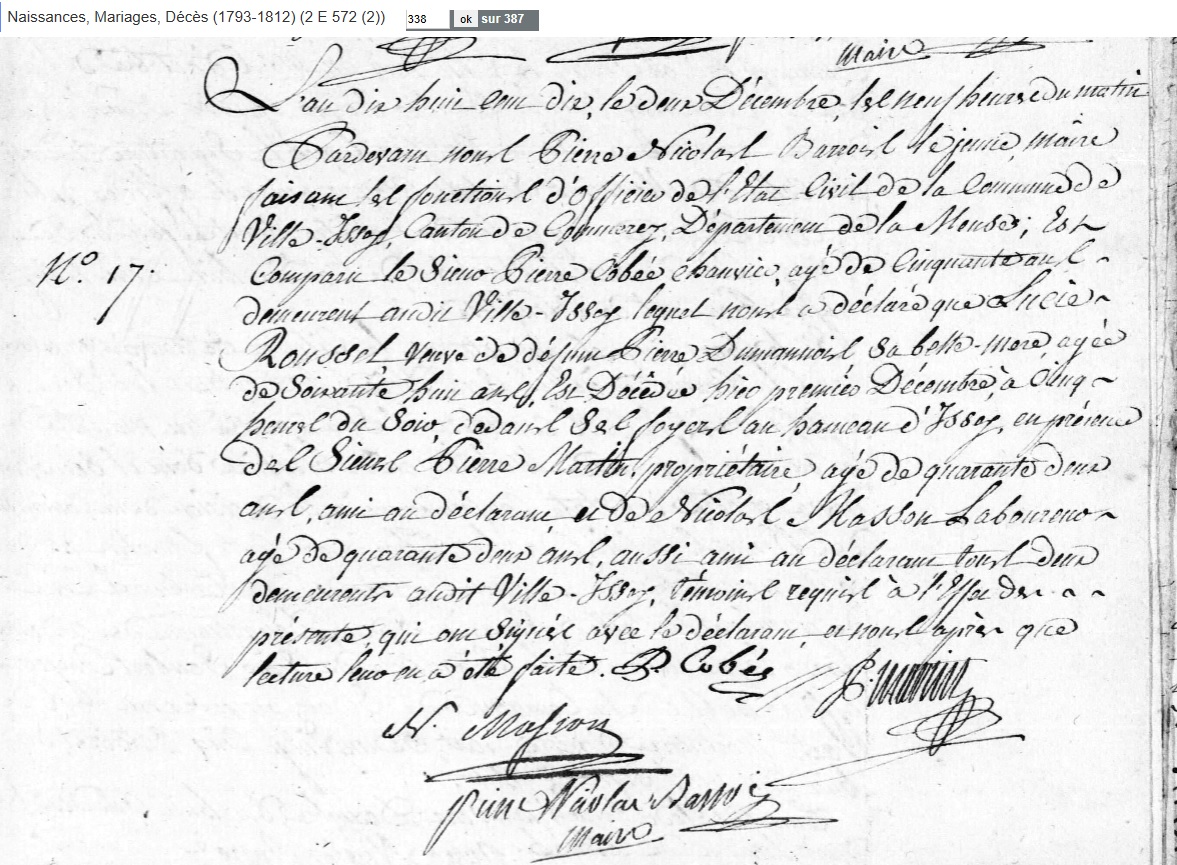 Naissances, Mariages, Décès (1793-1812) (2 E 572 (2)) 338 ok sur 387
Maire
L'an dix huit cent dix, le deux Décembre, les neuf heures du matin
Pardevant nous Pierre Nicolas Barrois le jeune, maire
faisant les fonctions d'Officier de l'Etat Civil de la Commune de
Ville-Issey, Canton de Commercy, Département de la Meuse; Est
N.° 17.
Comparu le Sieur Pierre Cobée chanvrier, agé de Cinquante ans
demeurent audit Ville-Issey lequel nous a déclaré que Lucie
Roussel veuve de défunt Pierre Dumannois sa belle-mere, agée
de Soixante huit ans, Est Décédée hier premier Décembre, à Cinq
heures du Soir, dedans Ses foyers au hameau d'Issey, en présence
des Sieurs Pierre Martin, propriétaire, agé de quarante deux
ans, ami au déclarant et de Nicolas Masson Laboureur
agé de quarante deux ans, aussi ami au déclarant tous deux
demeurents audit Ville-Issey, témoins requis à l'Effet des
présente, qui ont Signés avec le déclarant et nous après que
lecture leur en a été faite. P. Cobée P. Martin
N Masson
Pierre Nicolas Barrois
Maire